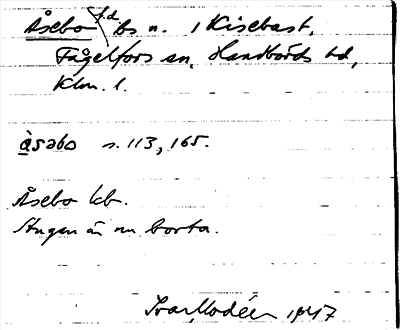 Åsebo f.d. bs n. i Kisebast,
Fågelfors sn, Handbörds hd,
Klm. l.
åsabo s. 113, 165.
Åsebo kb.
Stugan är nu borta.
Ivar Modéer 1947